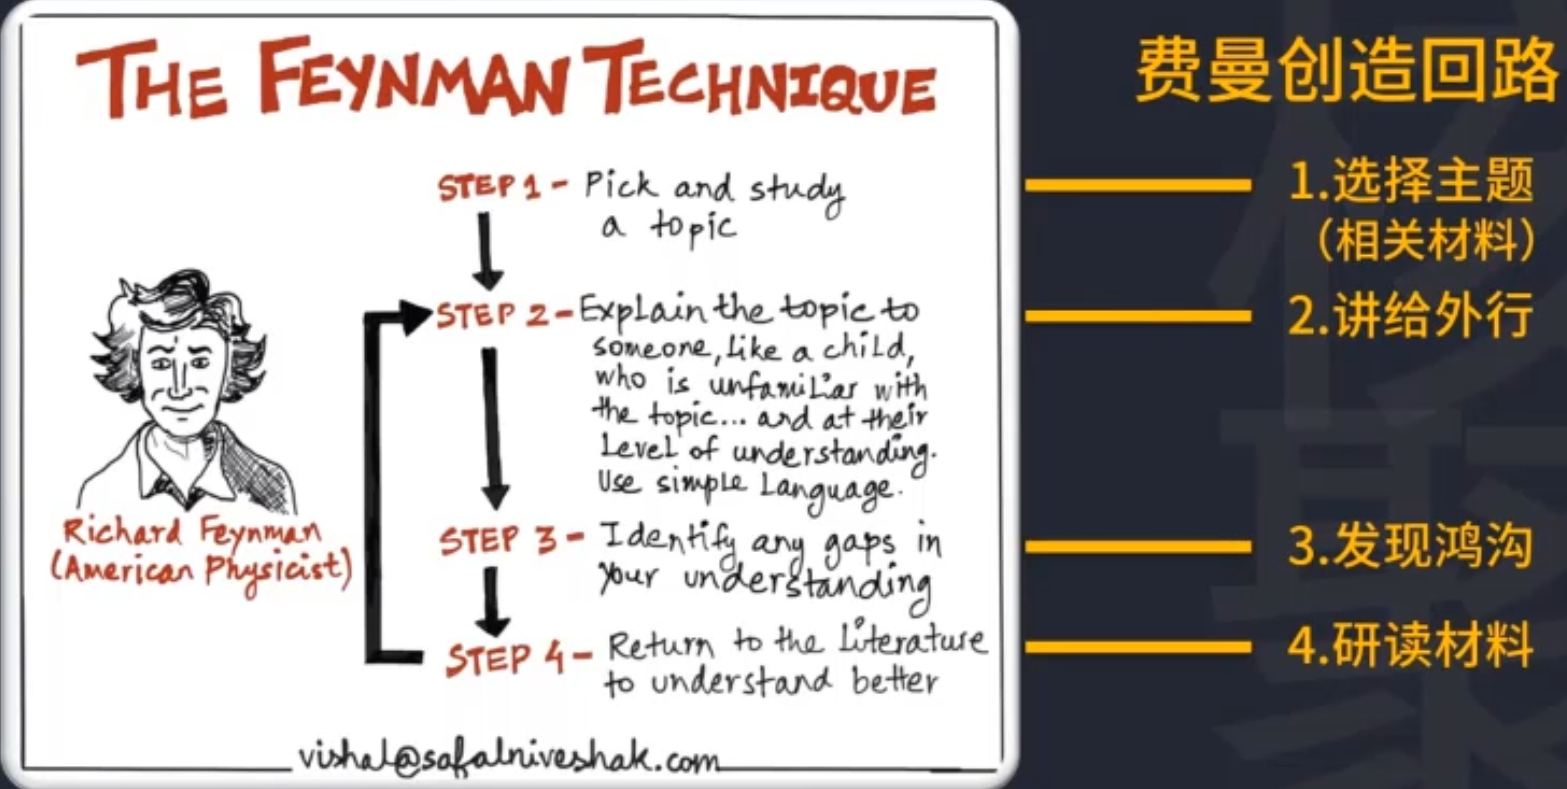 THE FEYNMAN TECHNIQUE
STEP 1 - Pick and study
a topic
STEP 2 - Explain the topic to
someone, like a child,
who is unfamiliar with
the topic... and at their
level of understanding.
Use simple language.
STEP 3 - Identify any gaps in
your understanding
STEP 4 - Return to the literature
to understand better
Richard Feynman
(American Physicist)
vishal@safalniveshak.com
费曼创造回路
1.选择主题
（相关材料）
2.讲给外行
3.发现鸿沟
4.研读材料